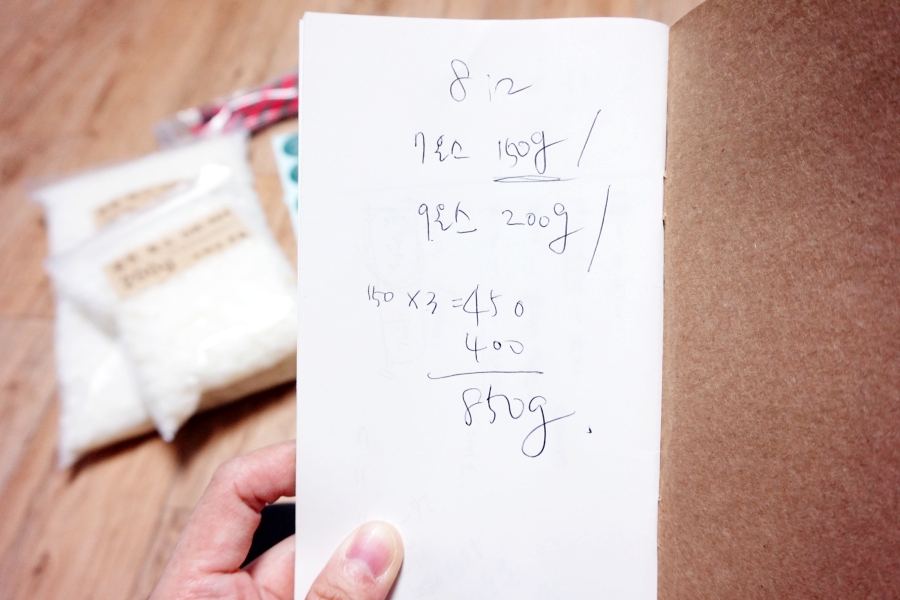 7온스 150g /
9온스 200g /
150 x 3 = 450
400
850g.